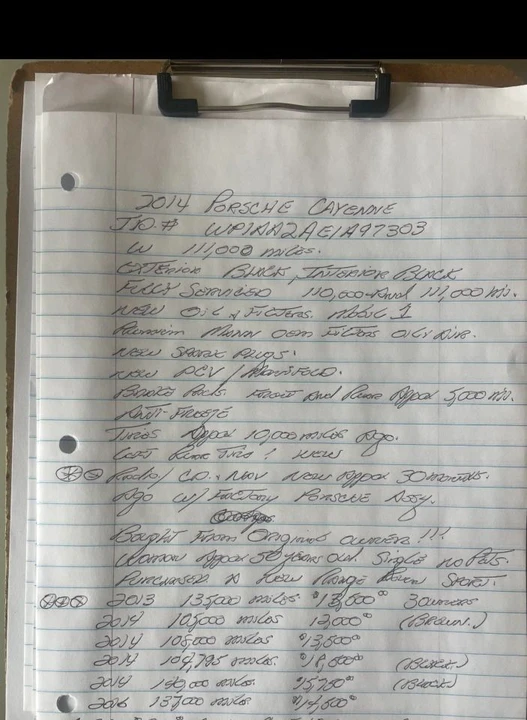 2014 PORSCHE CAYENNE
I.D.# WP1AA2AE1A97303
W 111,000 MILES.
EXTERIOR BLACK, INTERIOR BLACK
FULLY SERVICED 110,000 And 111,000 Mi.
NEW OIL & FILTERS. MOBIL 1
MANN OEM FILTERS OIL & AIR.
NEW SPARK PLUGS.
NEW PCV / MANIFOLD.
BRAKE PADS. FRONT And REAR Appox 5,000 mi.
ANTI-FREEZE
TIRES Appox 10,000 MILES Ago.
LEFT REAR TIRE? NEW
RADIO/CD. & NAV NEW Appox 30 MONTHS.
Ago W/ FACTORY PORSCHE ASSY.
Bought From Original OWNER!!!
WOMAN Appox 50 YEARS Old. Single no Pets.
PURCHASED A NEW Range Rover SPORT.
2013 135,000 MILES $13,500.00 3 OWNERS
2014 105,000 MILES 12,000.00 (BROWN.)
2014 108,000 MILES $13,500.00
2014 104,795 MILES $18,500.00 (BLACK)
2014 120,000 MILES $15,750.00 (BLACK)
2016 137,000 MILES $14,500.00